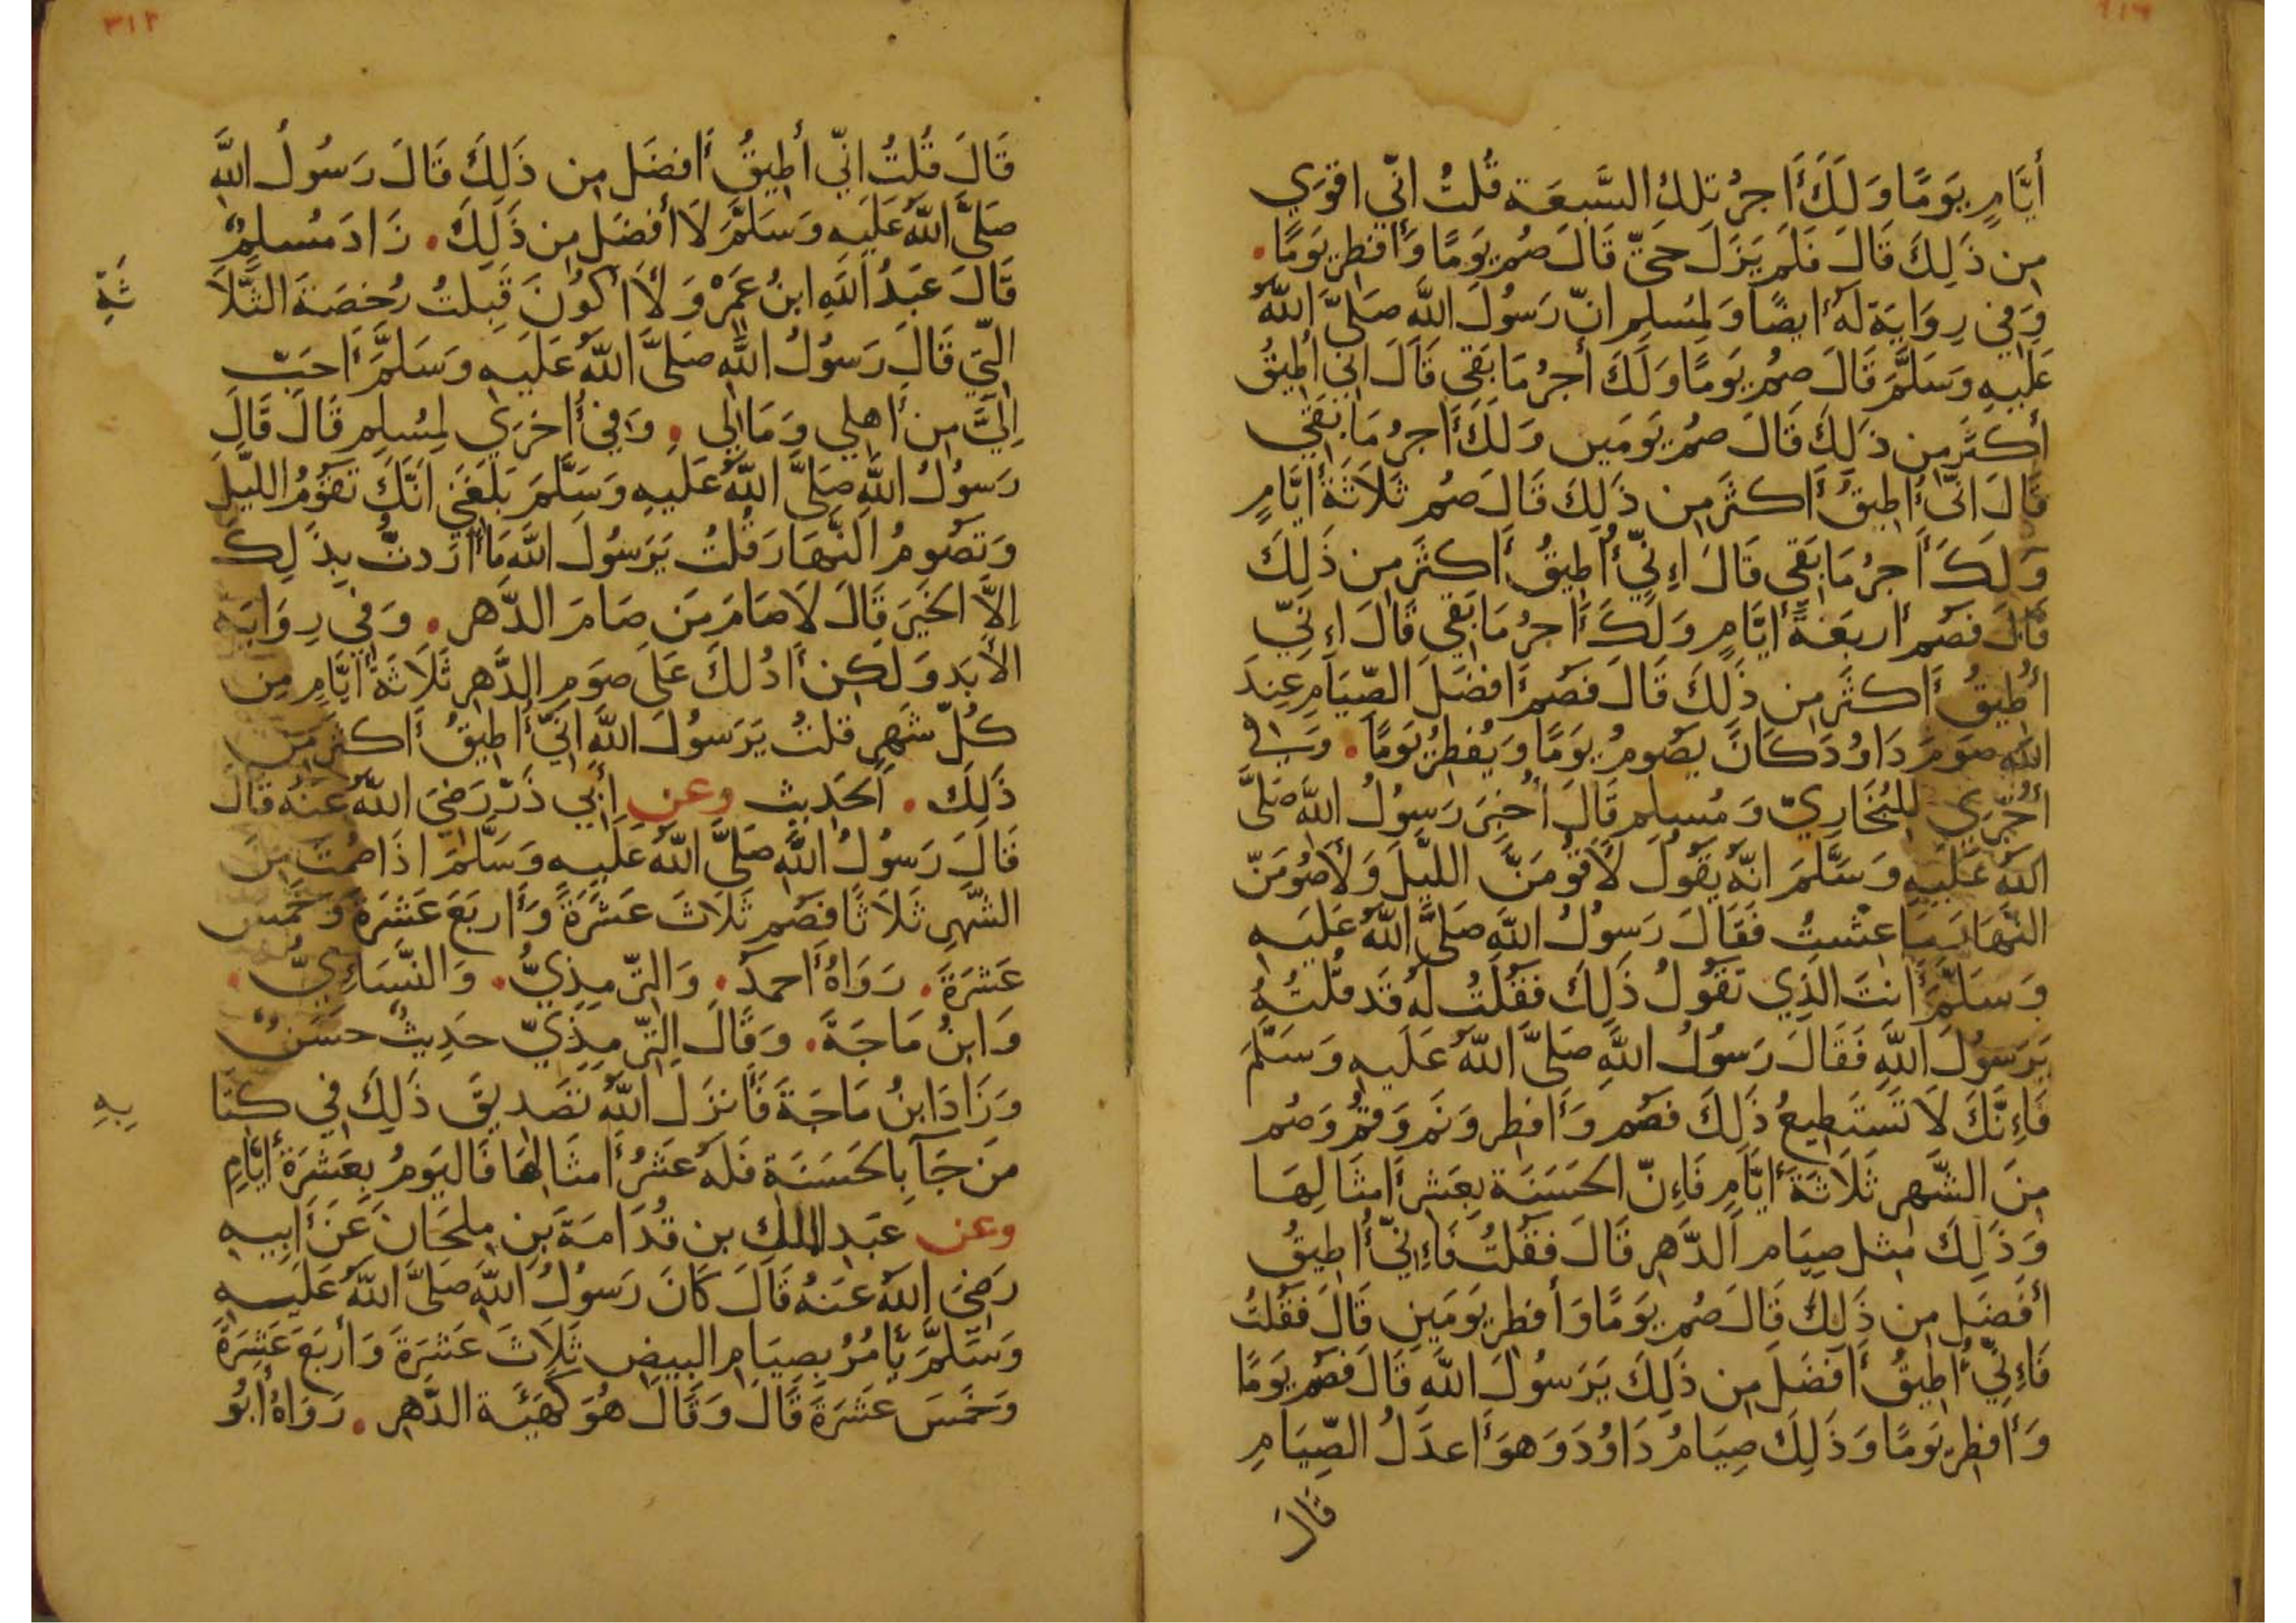 أَيَّامٍ يَوَمًا وَلَكَ أَجرُ تِلكِ السَّبعَة قُلتُ انّي اقوَي
مِن ذَلِكَ قَالَ فَلَم يَزَلَ حَتّي قَالَ صُم يَومًا وَأَفطِر يَومًا.
وَفي رِوَايَة لَهُ أَيضًا وَلِمُسلِمٍ انّ رَسُولَ اللَّه صَلَّىَ اللَّهُ
عَلَيهِ وَسَلَّمَ قَالَ صُم يَومًا وَلَكَ أَجرُ مَا بَقَي قَالَ اني أُطِيقُ
أَكثَرَ مِن ذَلِكَ قَالَ صُم يَومَين وَلَكَ أَجرُ مَا بَقَي
قَالَ انّي أُطِيقُ أَكثَرَ مِن ذَلِكَ قَالَ صُم ثَلَاثَةَ أَيَّامٍ
وَلَكَ أَجرُ مَا بَقَي قَالَ اءِنّي أُطِيقُ أَكثَرَ مِن ذَلِكَ
قَالَ فَصُم أَربَعَةً أَيَّامٍ وَلَكَ أَجرُ مَا بَقَي قَالَ اءِنّي
أُطِيقُ أَكثَرَ مِن ذَلِكَ قَالَ فَصُم أَفضَلَ الصّيَامِ عِندَ
اللَّه صَومَ دَاوُدَ كَانَ يَصُومُ يَومًا وَيُفطِرُ يَومًا. وَفي
أُخرَي لِلبُخَارِيّ وَمُسلِمٍ قَالَ أُخبِرَ رَسُولُ اللَّه صَلَّىَ
اللَّهُ عَلَيهِ وَسَلَّمَ انَّهُ يَقُولُ لَأَقُومَنَّ اللَّيلَ وَلَأَصُومَنّ
النَّهَارَ مَا عِشتُ فَقَالَ رَسُولُ اللَّهِ صَلَّىَ اللَّهُ عَلَيهِ
وَسَلَّمَ أَنتَ الَّذِي تَقُولُ ذَلِكَ فَقُلتُ لَهُ قَد قُلتُهُ
يَرَسُولَ اللَّهِ فَقَالَ رَسُولُ اللَّهِ صَلَّىَ اللَّهُ عَلَيهِ وَسَلَّمَ
فَاءِنَّكَ لَا تَستَطِيعُ ذَلِكَ فَصُم وَأَفطِر وَنَم وَقُم وَصُم
مِنَ الشَّهرِ ثَلَاثَةَ أَيَّامٍ فَاءِنّ الحَسَنَة بِعَشرِ أَمثَالِهَا
وَذَلِكَ مِثل صِيَام الدَّهرِ قَالَ فَقُلتُ فَاءِنّي أُطِيقُ
أَفضَل مِن ذَلِكَ قَالَ صُم يَومًا وَأَفطِر يَومَينِ قَالَ فَقُلتُ
فَاءِنّي أُطِيقُ أَفضَلَ مِن ذَلِكَ يَرَسُولَ اللَّهِ قَالَ فَصُم يَومًا
وَأَفطِر يَومًا وَذَلِكَ صِيَامُ دَاوُدَ وَهوَ أَعدَلُ الصِّيَامِ
قَالَ
٣١٢
قَالَ قُلتُ انّي أُطِيقُ أَفضَل مِن ذَلِكَ قَالَ رَسُولُ اللَّهِ
صَلَّىَ اللَّهُ عَلَيهِ وَسَلَّمَ لَا أَفضَل مِن ذَلِكَ. زَادَ مُسلِمٌ
قَالَ عَبدُ اللَّهِ ابنُ عَمرٍو وَلَأَ اكُونَ قَبِلتُ رُخصَةَ الثَّلَا
ثَةِ
الّتي قَالَ رَسُولُ اللَّهِ صَلَّىَ اللَّهُ عَلَيهِ وَسَلَّمَ أَحَبّ
اِلَيَّ مِن أَهلي وَمَالي. وَفي أُخرَي لِمُسلِمٍ قَالَ قَالَ
رَسُولُ اللَّهِ صَلَّىَ اللَّهُ عَلَيهِ وَسَلَّمَ بَلَغَني انَّكَ تَقُومُ اللَّيلَ
وَتَصُومُ النَّهَارَ قُلتُ يَرَسُولَ اللَّه مَا أَرَدتُّ بِذَلِكَ
اِلَّا الخَيرَ قَالَ لَا صَامَ مَن صَامَ الدَّهر. وَفي رِوَايَة
الأَبَد وَلَكِن أَدُلكَ عَلَىَ صَومِ الدَّهرِ ثَلَاثَةُ أَيَّامٍ مِن
كُلّ شَهرٍ قلتُ يَرَسُولَ اللَّهِ انّي أُطِيقُ أَكثَرَ مِن
ذَلِكَ. الحَدِيث وعن أَبي ذَرّ رَضيَ اللَّهُ عَنهُ قَالَ
قَالَ رَسُولُ اللَّهِ صَلَّىَ اللَّهُ عَلَيهِ وَسَلَّمَ اذَا صُمتَ مِنَ
الشَّهرِ ثَلَاثًا فَصُم ثَلَاثَ عَشَرَةَ وَأَربَعَ عَشَرَةَ وَخَمس
عَشرَةَ. رَوَاهُ أَحمدُ. وَالتّرمِذِيُّ. وَالنَّسَاءِيُّ.
وَابنُ مَاجَةَ. وَقَالَ التّرمِذِيّ حَدِيثٌ حسَنٌ
وَزَادَ ابنُ مَاجَةَ فَأَنزَلَ اللَّهُ تَصَدِيقَ ذَلِكَ في كِتَا
بِهِ
مَن جَآ بِالحَسَنَة فَلَهُ عَشرُ أَمثَالهَا فَاليَومُ بِعَشرَة أَيَّامٍ
وعن عَبدِ الملك بن قُدَامَةَ بَنِ مِلحَانَ عَن أَبِيهِ
رَضيَ اللَّهُ عَنهُ قَالَ كَانَ رَسُولُ اللَّهِ صَلَّىَ اللَّهُ عَلَيهِ
وَسَلَّمَ يَأمُرُ بِصِيَامِ البيضِ ثَلَاثَ عَشرَةَ وَأَربَعَ عَشرَةَ
وَخَمسَ عَشرَةَ قَالَ وَقَالَ هُوَ كَهَيَئَة الدَّهر. رَوَاهُ أَبُو